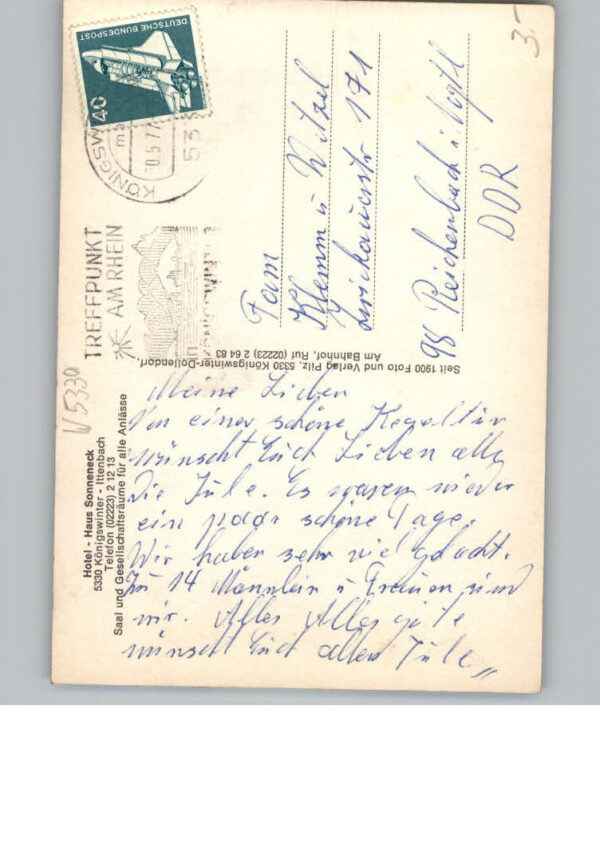 Hotel - Haus Sonneneck
5330 Königswinter - Ittenbach
Telefon (02223) 2 12 13
Saal und Gesellschaftsräume für alle Anlässe
V 5330
TREFFPUNKT
AM RHEIN
KÖNIGSW
53
DEUTSCHE BUNDESPOST
40
3.-
Seit 1900 Foto und Verlag Pilz, 5330 Königswinter-Dollendorf,
Am Bahnhof, Ruf (02223) 2 64 83
Fam
Klemm u Witzel
Zwickauerstr 171
98 Reichenbach i. Vogtl
DDR
Meine Lieben
Von einer schöne Kegeltür
wünscht Euch Lieben alle
die Jule. Es waren wieder
ein paar schöne Tage.
Wir haben sehr viel gelacht.
Zu 14 Männlein u Frauen sind
wir. Alles Alles gute
wünscht Euch allen Jule